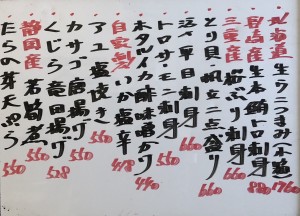 北海道産生うつぶ貝 1760
長崎産生本鮪トロ刺身 880
三重産 岩ガキ刺身 660
とり貝・帆立二点盛り 660
活〆平目刺身 660
トロサーモン刺身 550
ホタルイカ酢味噌がけ 440
自家製いか塩辛 418
アユ塩焼き 550
カサゴ唐揚げ 550
くじら竜田揚げ 528
静岡産若筍煮 550
たらの芽天ぷら 550